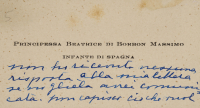 Principessa Beatrice di Borbon Massimo
Infante di Spagna
non ho ricevuto nessuna
risposta alla mia lettera
se voglio la
cata. non capisco